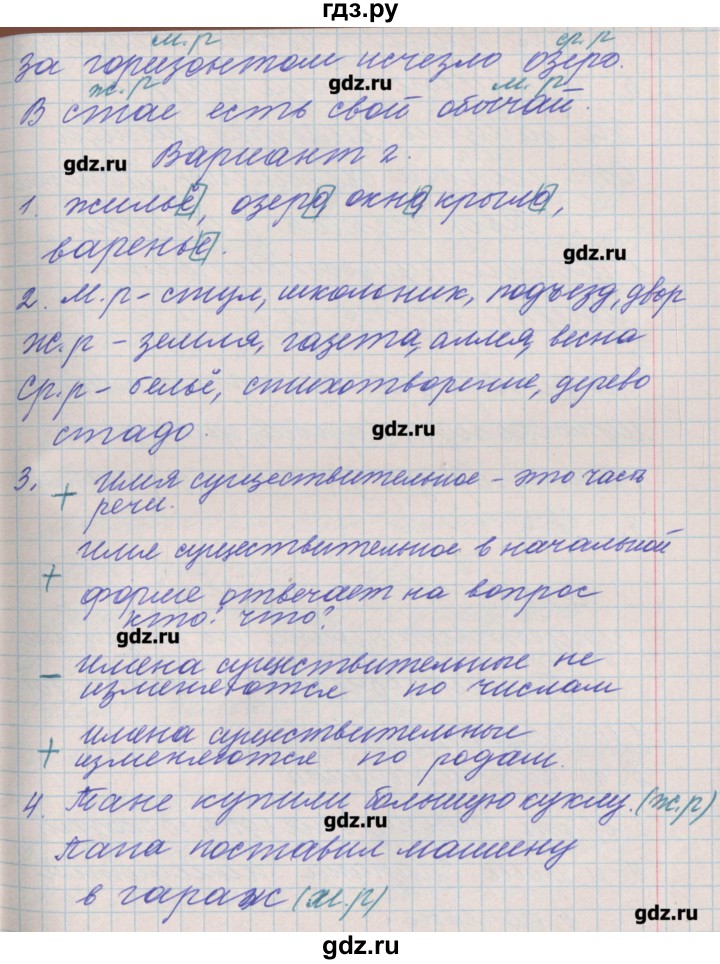 гдз.ру
м.р ср.р
за горизонтом исчезло озеро.
ж.р gdz.ru м.р
В стае есть свой обычай.
gdz.ru Вариант 2.
1. жилье, озеро, окно, крыло,
варенье. gdz.ru
2. м.р - стул, школьник, подъезд, двор
ж.р - земля, газета, аллея, весна
ср.р - бельё, стихотворение, дерево
стадо. gdz.ru
3. + имя существительное - это часть
речи.
имя существительное в начальной
+ форме отвечает на вопрос
кто? что?
gdz.ru
- имена существительные не
изменяются по числам
имена существительные
+ изменяются по родам.
4. Тане купили большую куклу. (ж.р)
gdz.ru
Папа поставил машину
в гараж (м.р)
gdz.ru
gdz.ru